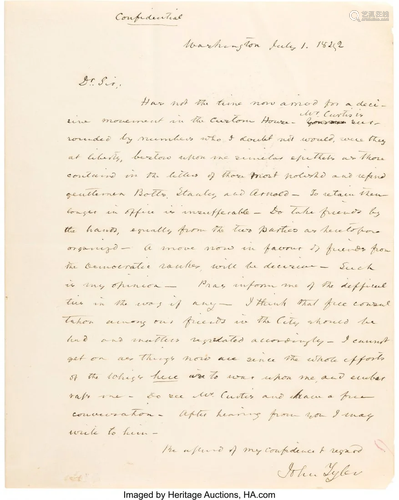 Confidential
Washington July 1. 1842
Dr Sir,
Has not the time now arrived for a deci-
sive movement in the Custom House - Mr Curtis is sur-
rounded by numbers who I doubt not would, were they
at liberty, bestow upon me similar epithets as those
contained in the letters of those most polished and refind
gentlemen Botts, Stanley and Arnold - To retain them
longer in office is insufferable - Do take friends by
the hands, equally from the two parties as heretofore
organizd - A move now in favour of friends from
the Democratic ranks, will be decisive - Such
is my opinion - Pray inform me of the difficul
ties in the way if any - I think that free consul
tation among our friends in the City should be
had and matters regulated accordingly - I cannot
get on as things now are since the whole efforts
of the Whigs here is to war upon me, and embar
rass me - Do see Mr Curtis and have a free
conversation - After hearing from you I may
write to him -
Be assured of my confidence & regard
John Tyler
Imaged by Heritage Auctions, HA.com